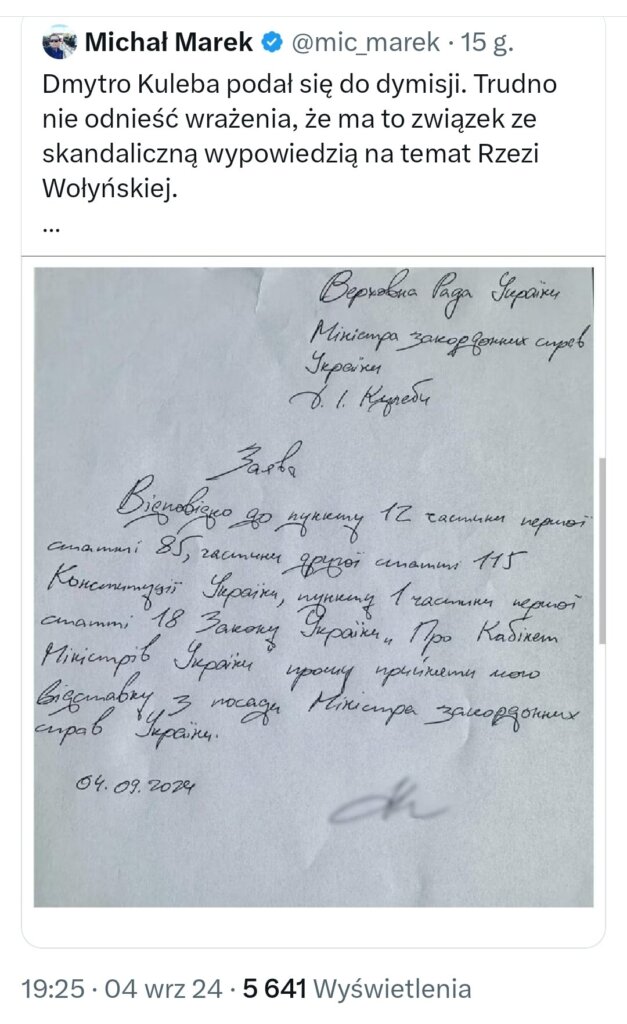 Michał Marek @mic_marek · 15 g.
Dmytro Kuleba podał się do dymisji. Trudno
nie odnieść wrażenia, że ma to związek ze
skandaliczną wypowiedzią na temat Rzezi
Wołyńskiej.
...
Верховна Рада України
Міністра закордонних справ
України
Д. І. Кулеби
Заява
Відповідно до пункту 12 частини першої
статті 85, частини другої статті 115
Конституції України, пункту 1 частини першої
статті 18 Закону України „Про Кабінет
Міністрів України" прошу прийняти мою
відставку з посади Міністра закордонних
справ України.
04.09.2024
19:25 · 04 wrz 24 · 5 641 Wyświetlenia